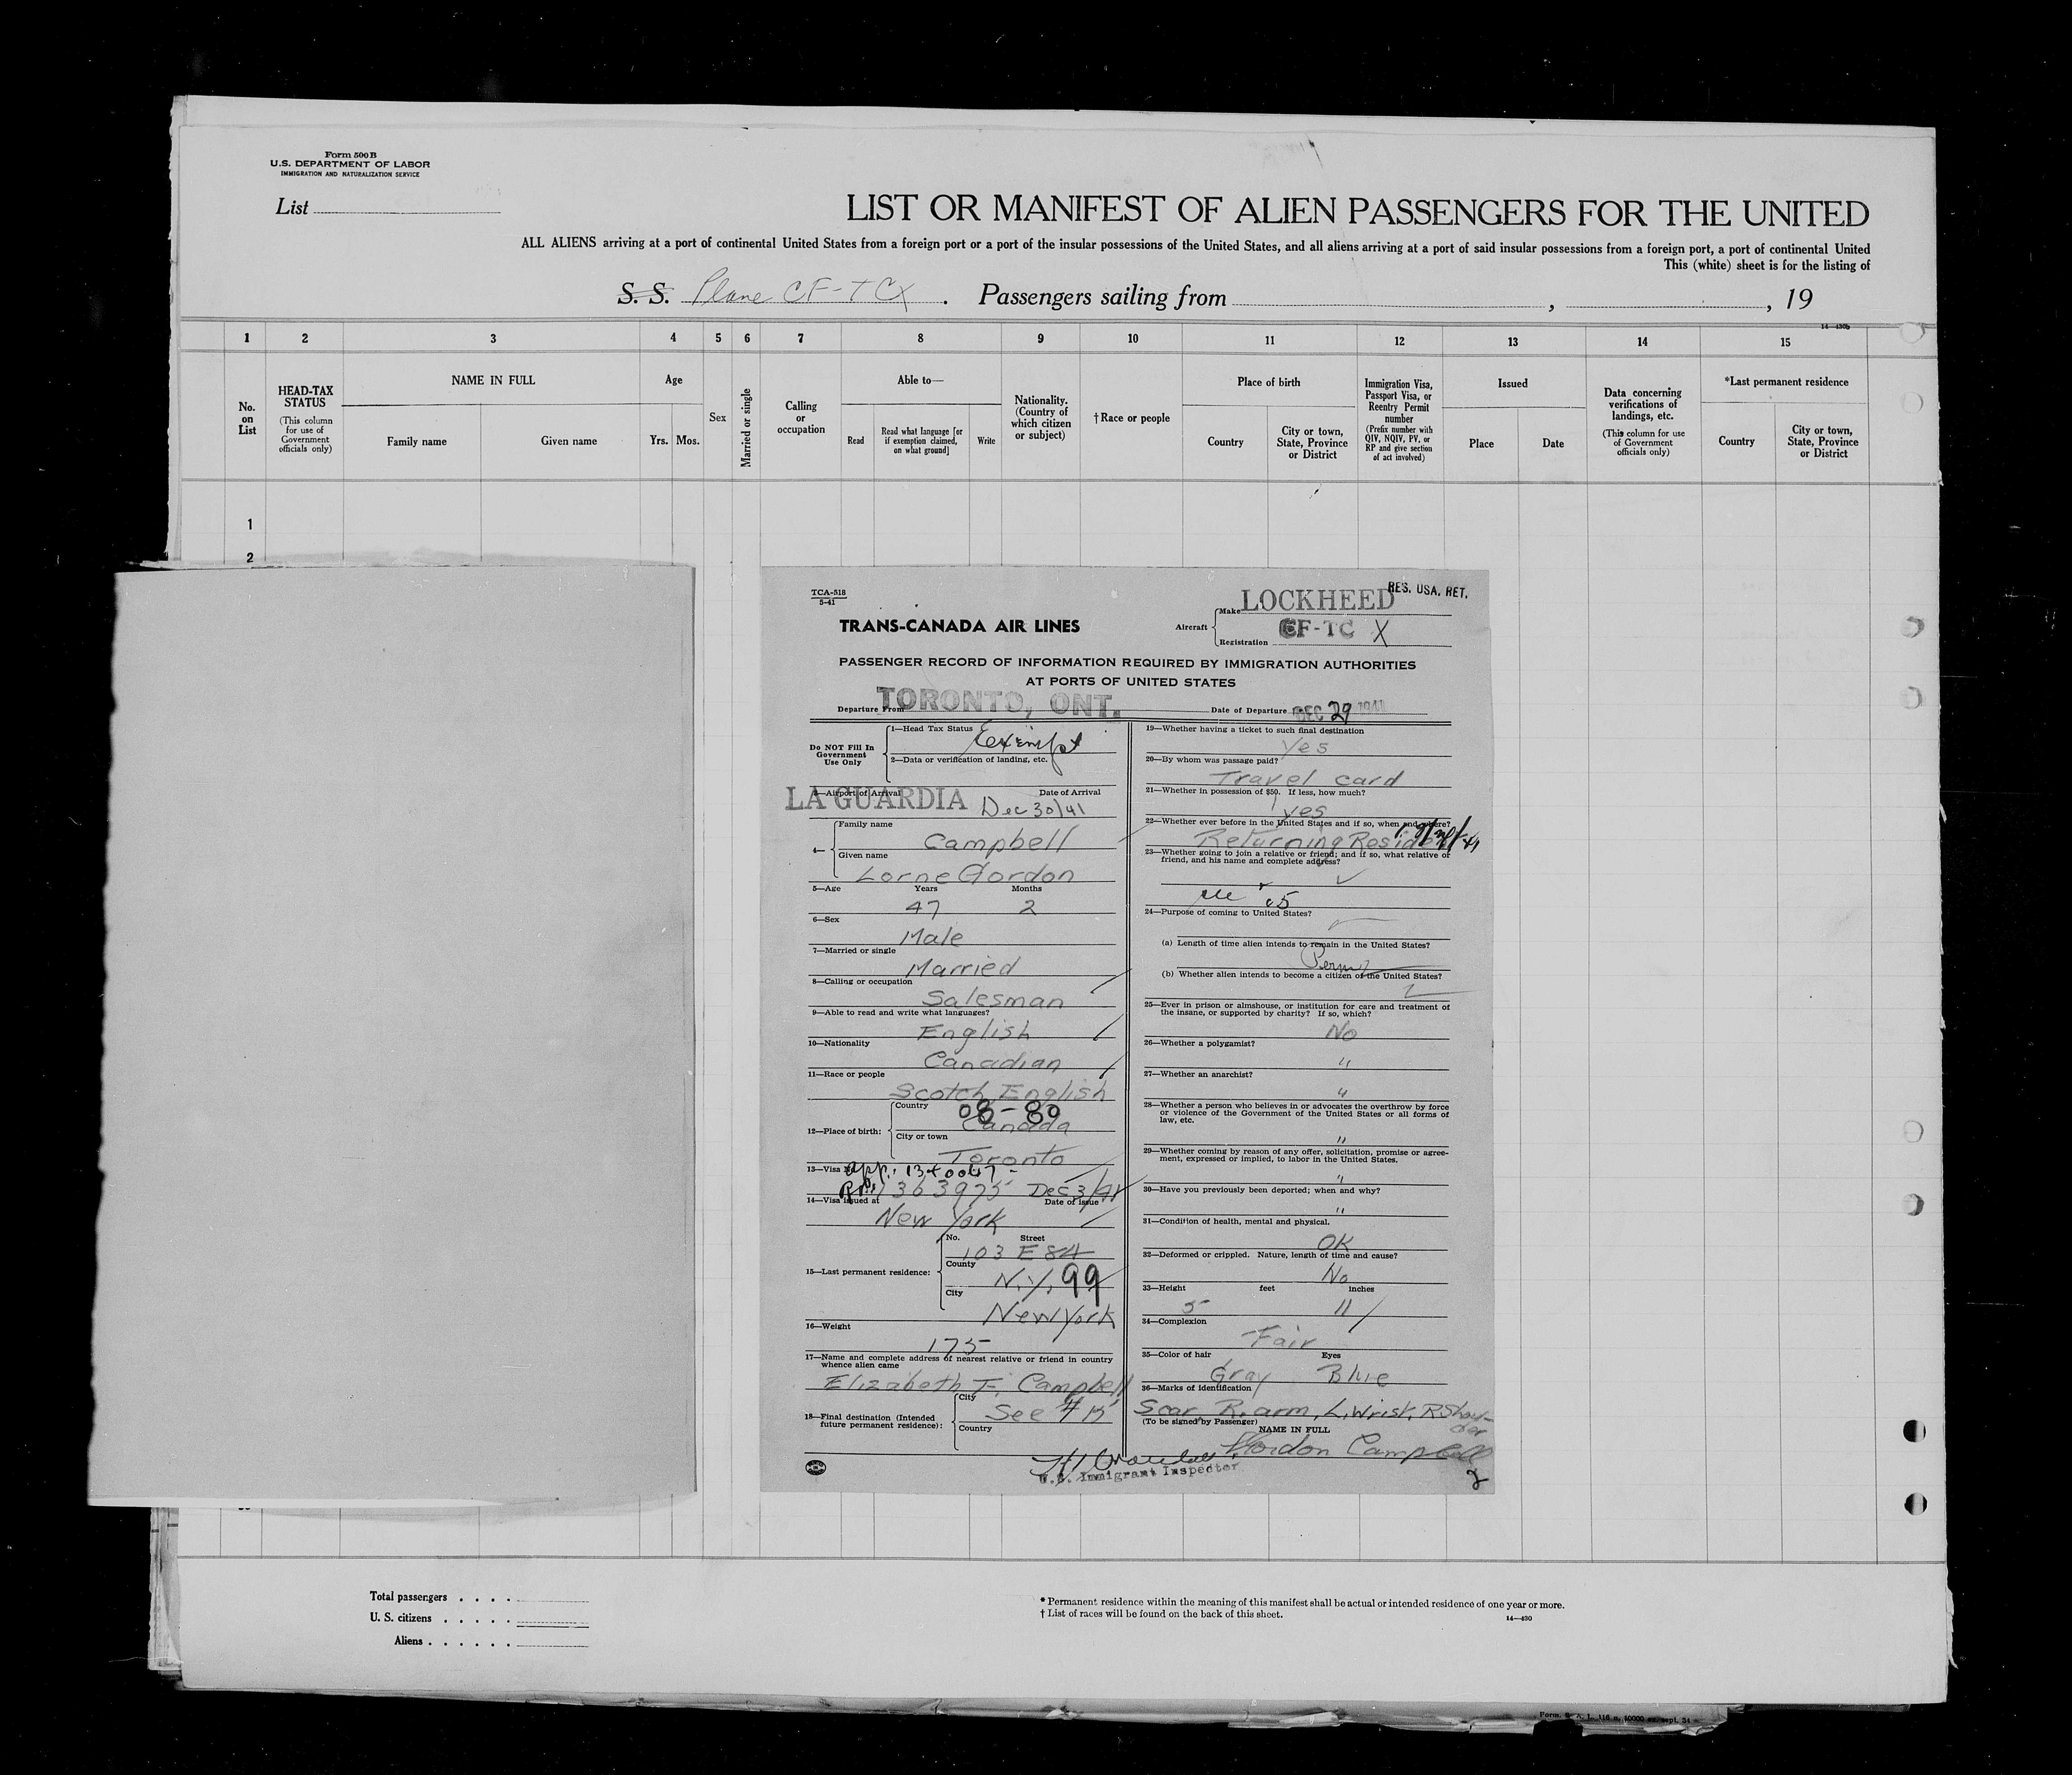 Form 500 B
U.S. DEPARTMENT OF LABOR
IMMIGRATION AND NATURALIZATION SERVICE
List
LIST OR MANIFEST OF ALIEN PASSENGERS FOR THE UNITED
ALL ALIENS arriving at a port of continental United States from a foreign port or a port of the insular possessions of the United States, and all aliens arriving at a port of said insular possessions from a foreign port, a port of continental United
This (white) sheet is for the listing of
S. S. Plane CF-TCX. Passengers sailing from , , 19
14—430b
1 2 3 4 5 6 7 8 9 10 11 12 13 14 15
No. on List
HEAD-TAX STATUS
(This column for use of Government officials only)
NAME IN FULL
Family name Given name
Age
Yrs. Mos.
Sex
Married or single
Calling or occupation
Able to—
Read
Read what language [or if exemption claimed, on what ground]
Write
Nationality. (Country of which citizen or subject)
† Race or people
Place of birth
Country
City or town, State, Province or District
Immigration Visa, Passport Visa, or Reentry Permit number
(Prefix number with QIV, NQIV, PV, or RP and give section of act involved)
Issued
Place Date
Data concerning verifications of landings, etc.
(This column for use of Government officials only)
*Last permanent residence
Country
City or town, State, Province or District
1
2
TCA-518
5-41
RES. USA. RET.
TRANS-CANADA AIR LINES
Aircraft
Make LOCKHEED
Registration CF-TC X
PASSENGER RECORD OF INFORMATION REQUIRED BY IMMIGRATION AUTHORITIES
AT PORTS OF UNITED STATES
Departure From TORONTO, ONT. Date of Departure DEC 29 1941
Do NOT Fill In Government Use Only
1—Head Tax Status Exempt
2—Data or verification of landing, etc.
3—Airport of Arrival Date of Arrival
LA GUARDIA Dec 30/41
4—
Family name
Campbell
Given name
Lorne Gordon
5—Age Years Months
47 2
6—Sex
Male
7—Married or single
Married
8—Calling or occupation
Salesman
9—Able to read and write what languages?
English
10—Nationality
Canadian
11—Race or people
Scotch English
12—Place of birth:
Country 08-80
Canada
City or town
Toronto
13—Visa
1363975 Dec 3/41
14—Visa issued at Date of issue
New York
15—Last permanent residence:
No. Street
103 E 84
County
N.Y. 99
City
New York
16—Weight
175
17—Name and complete address of nearest relative or friend in country
whence alien came
Elizabeth F. Campbell
18—Final destination (Intended future permanent residence):
City
See # 15
Country
19—Whether having a ticket to such final destination
Yes
20—By whom was passage paid?
Travel card
21—Whether in possession of $50. If less, how much?
yes
22—Whether ever before in the United States and if so, when and where?
Returning Resident
23—Whether going to join a relative or friend; and if so, what relative or
friend, and his name and complete address?
24—Purpose of coming to United States?
(a) Length of time alien intends to remain in the United States?
Perm
(b) Whether alien intends to become a citizen of the United States?
25—Ever in prison or almshouse, or institution for care and treatment of
the insane, or supported by charity? If so, which?
No
26—Whether a polygamist?
"
27—Whether an anarchist?
"
28—Whether a person who believes in or advocates the overthrow by force
or violence of the Government of the United States or all forms of
law, etc.
"
29—Whether coming by reason of any offer, solicitation, promise or agree-
ment, expressed or implied, to labor in the United States.
"
30—Have you previously been deported; when and why?
"
31—Condition of health, mental and physical.
OK
32—Deformed or crippled. Nature, length of time and cause?
No
33—Height feet inches
5 11
34—Complexion
Fair
35—Color of hair Eyes
Gray Blue
36—Marks of identification
Scar R. arm, L. Wrist, R Shoulder
(To be signed by Passenger)
NAME IN FULL
Gordon Campbell
U.S. Immigrant Inspector
2
Total passengers
U. S. citizens
Aliens
* Permanent residence within the meaning of this manifest shall be actual or intended residence of one year or more.
† List of races will be found on the back of this sheet.
14—430